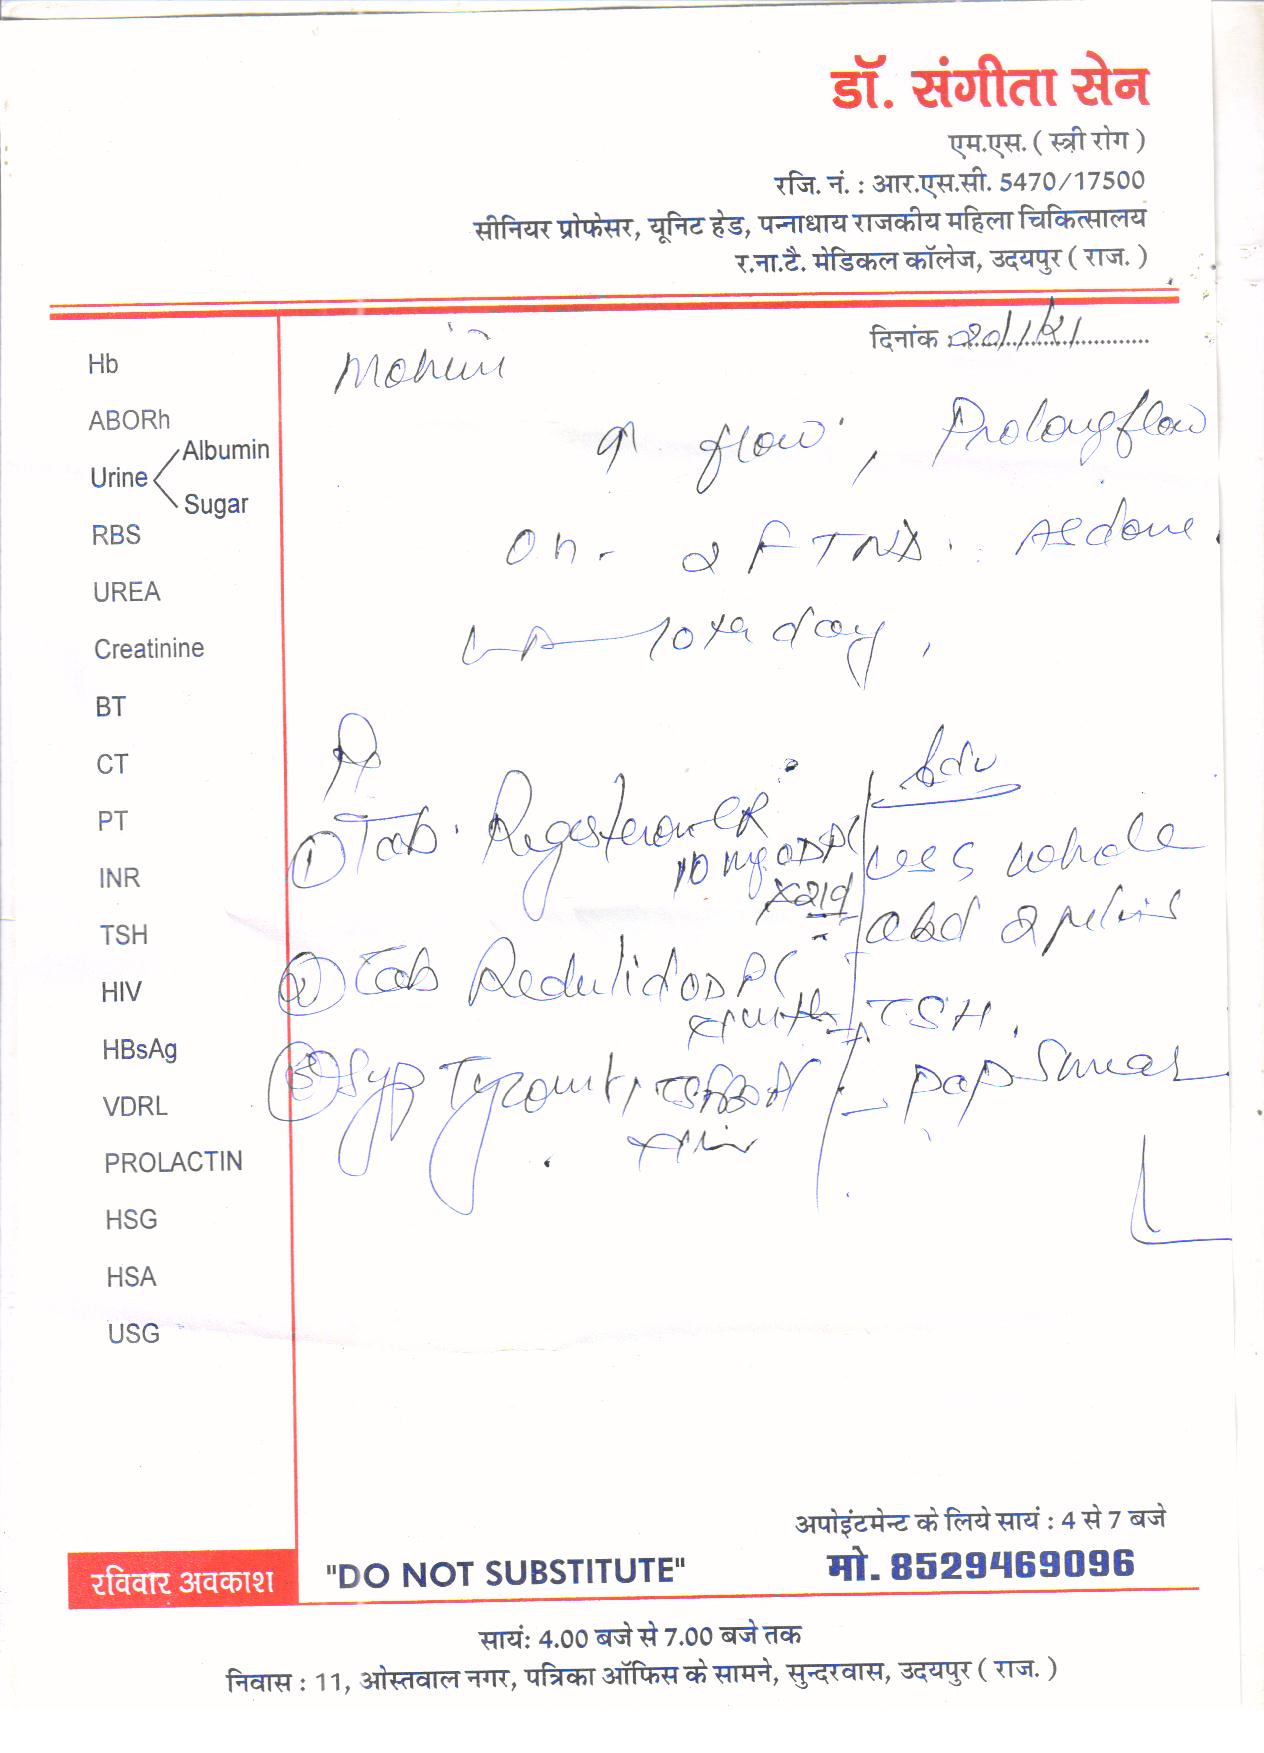 डॉ. संगीता सेन
एम.एस. ( स्त्री रोग )
रजि. नं. : आर.एस.सी. 5470/17500
सीनियर प्रोफेसर, यूनिट हेड, पन्नाधाय राजकीय महिला चिकित्सालय
र.ना.टै. मेडिकल कॉलेज, उदयपुर ( राज. )
दिनांक :
Hb
ABORh
Urine
Albumin
Sugar
RBS
UREA
Creatinine
BT
CT
PT
INR
TSH
HIV
HBsAg
VDRL
PROLACTIN
HSG
HSA
USG
↑ flow, Prolong flow
2 FTND.
10th day
Adv
① Tab.
10 mg OD PC
x 21d
USG whole
abd & pelvis
② Tab OD PC
TSH.
③ Syp
Pap Smear
अपोइंटमेन्ट के लिये सायं : 4 से 7 बजे
रविवार अवकाश
"DO NOT SUBSTITUTE"
मो. 8529469096
सायं: 4.00 बजे से 7.00 बजे तक
निवास : 11, ओस्तवाल नगर, पत्रिका ऑफिस के सामने, सुन्दरवास, उदयपुर ( राज. )